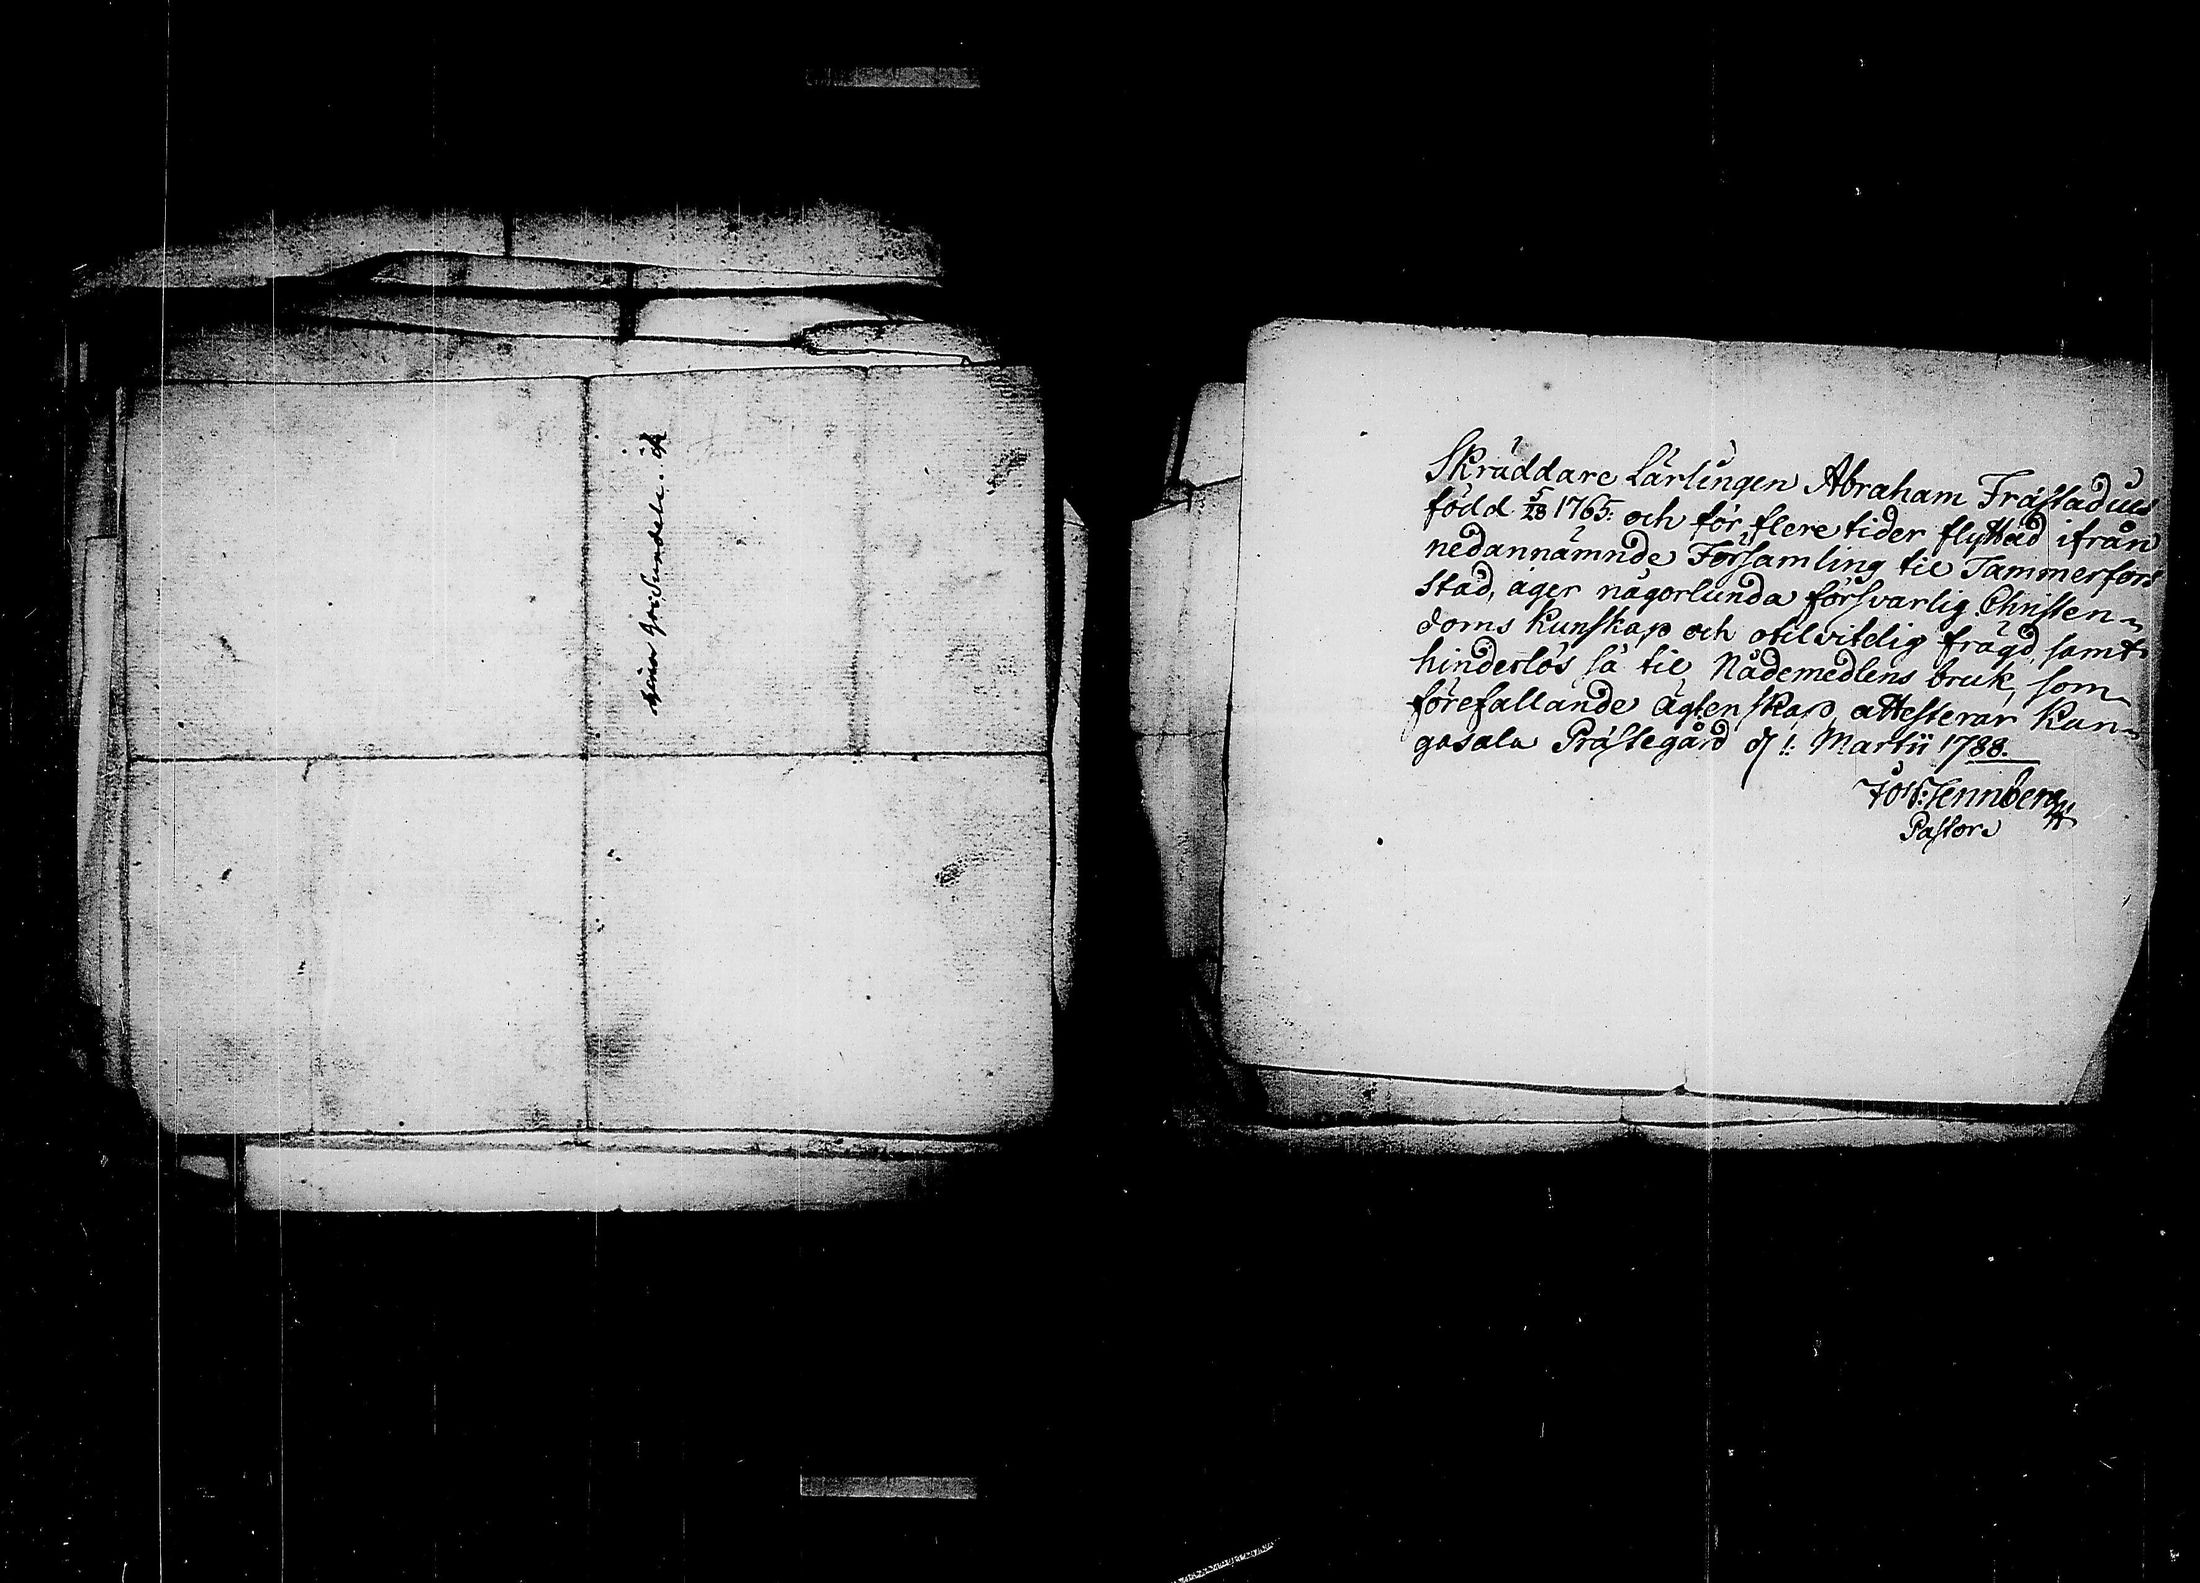 Skräddare Lärlingen Abraham Fråstadius
född 5/28 1765: och för flere tider flyttad ifrån
nedannämnde Församling til Tammerfors
stad, äger någorlunda försvarlig Christen-
doms kunskap och otilvitelig frägd, samt
hinderlös så til Nådemedlens bruk, som
förefallande Ägtenskap, attesterar Kan-
gasala Prästegård d. 1: Martii 1788.
Pastor